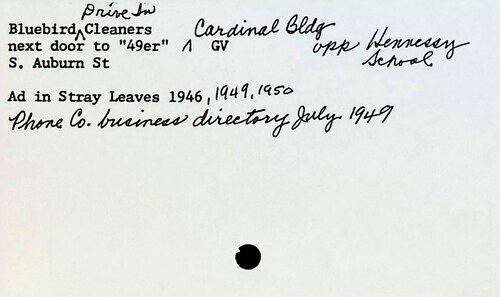 Drive In
Bluebird ^ Cleaners Cardinal Bldg
next door to "49er" ^ GV opp Hennessy
S. Auburn St School
Ad in Stray Leaves 1946, 1949, 1950
Phone Co. business directory July 1949